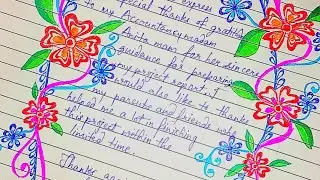 express
special thanks of gratitude
to my Accountancy madam
Anita mam for her sincere
guidance for preparing
my project report. I
would also like to thanks
my parents and friends who
helped me a lot in finishing
this project within the
limited time.
Thanks